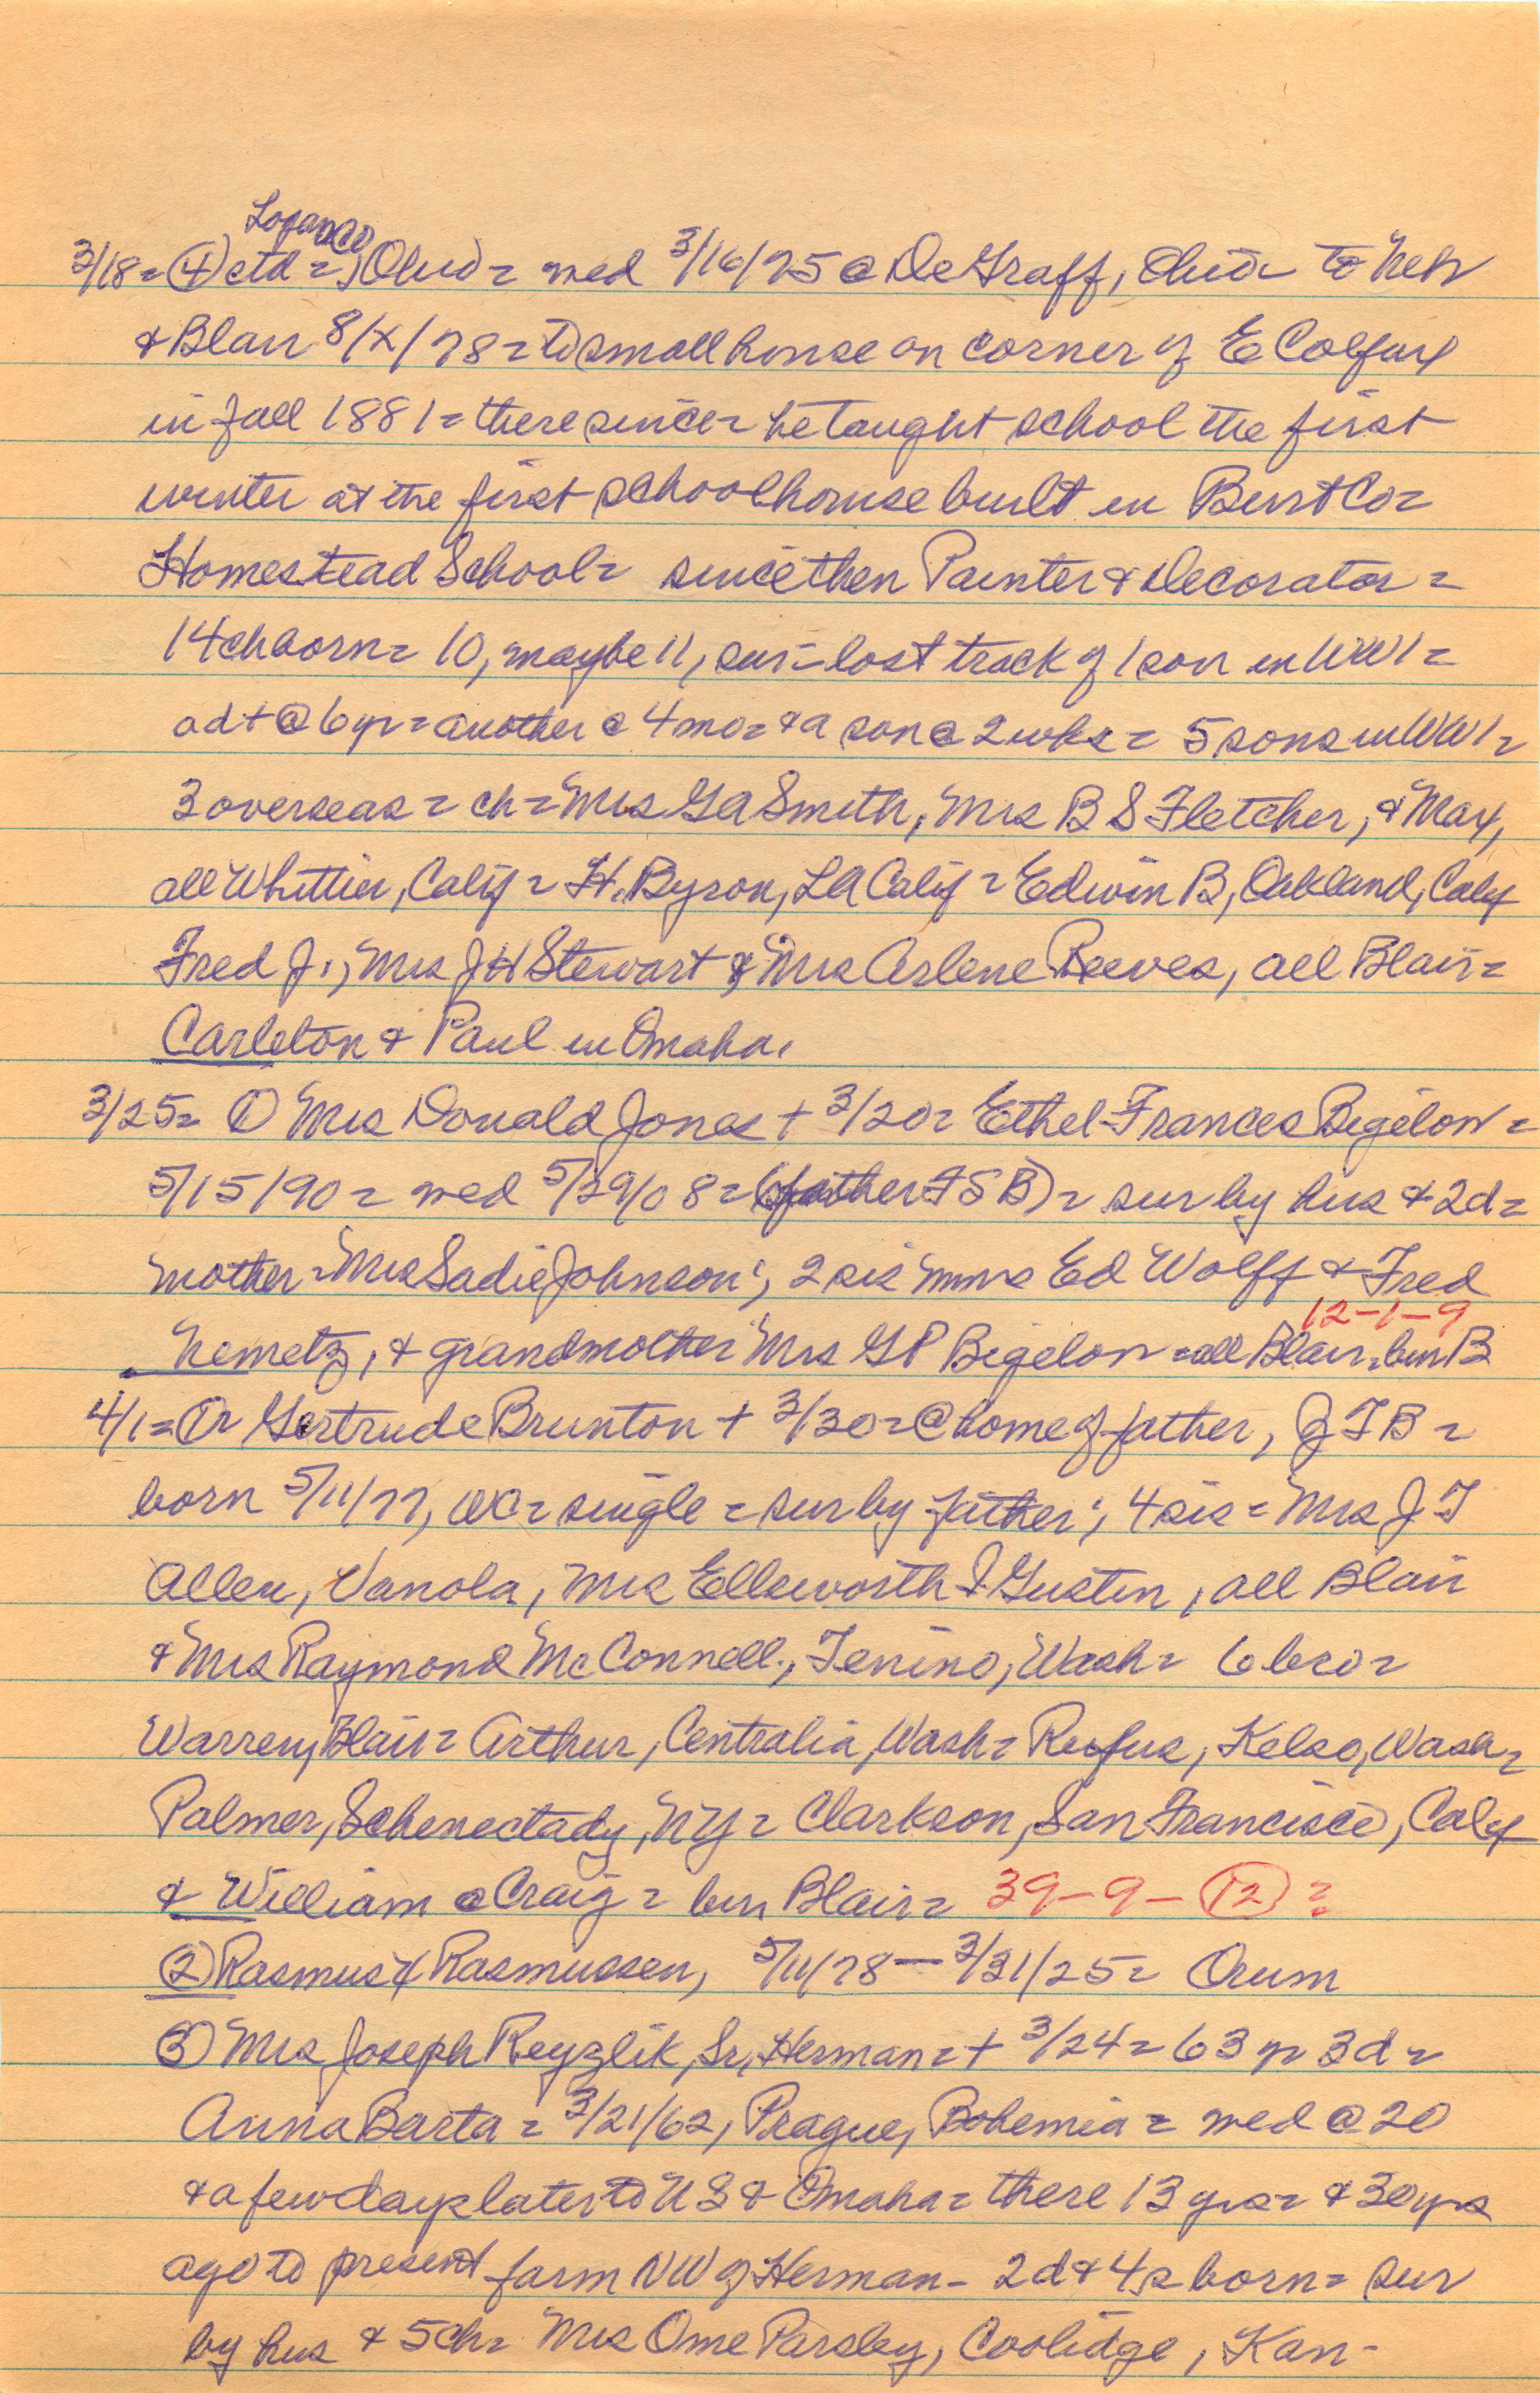 Logan Co
3/18= ④ ctd =, Ohio = med 3/16/75 @ DeGraff, Ohio = to Neb
& Blair 8/x/78 = to small house on corner of E Colfax
in fall 1881 = there since = he taught school the first
winter at the first schoolhouse built in Burt Co =
Homestead School = since then Painter & Decorator =
14 ch born = 10, maybe 11, sur = lost track of 1 son in WW1 =
a d + @ 6 yr = another @ 4 mo = & a son @ 2 wks = 5 sons in WW1 =
3 overseas = ch = Mrs GA Smith, Mrs B S Fletcher, & May,
all Whittier, Calif = H. Byron, LA Calif = Edwin B, Oakland, Calif
Fred J., Mrs JH Stewart & Mrs Arlene Reeves, all Blair =
Carleton & Paul in Omaha.
3/25= ① Mrs Donald Jones + 3/20 = Ethel Frances Bigelow =
5/15/90 = med 5/29/08 = (father F S B) = sur by hus & 2d =
mother = Mrs Sadie Johnson; 2 sis Mmes Ed Wolff & Fred
12-1-9
Nemetz, & grandmother Mrs G P Bigelow = all Blair = bur B
4/1= ① Gertrude Brunton + 3/30 = @ home of father, J T B =
born 5/11/77, WC = single = sur by father; 4 sis = Mrs J T
Allen, Vanola, Mrs Ellsworth I Gustin, all Blair
& Mrs Raymond McConnell, Tenino, Wash = 6 bro =
Warren, Blair = Arthur, Centralia, Wash = Rufus, Kelso, Wash =
Palmer, Schenectady, NY = Clarkson, San Francisco, Calif
& William @ Craig = bur Blair = 39-9-⑫ =
② Rasmus Rasmussen, 5/11/78 — 3/31/25 = Orum
③ Mrs Joseph Reyzlik, Sr, Herman = + 3/24 = 63 yr 3d =
Anna Barta = 3/21/62, Prague, Bohemia = med @ 20
& a few days later to US & Omaha = there 13 yrs = & 30 yrs
ago to present farm NW of Herman - 2d & 4s born = sur
by hus & 5 ch = Mrs Ome Parsley, Coolidge, Kan -